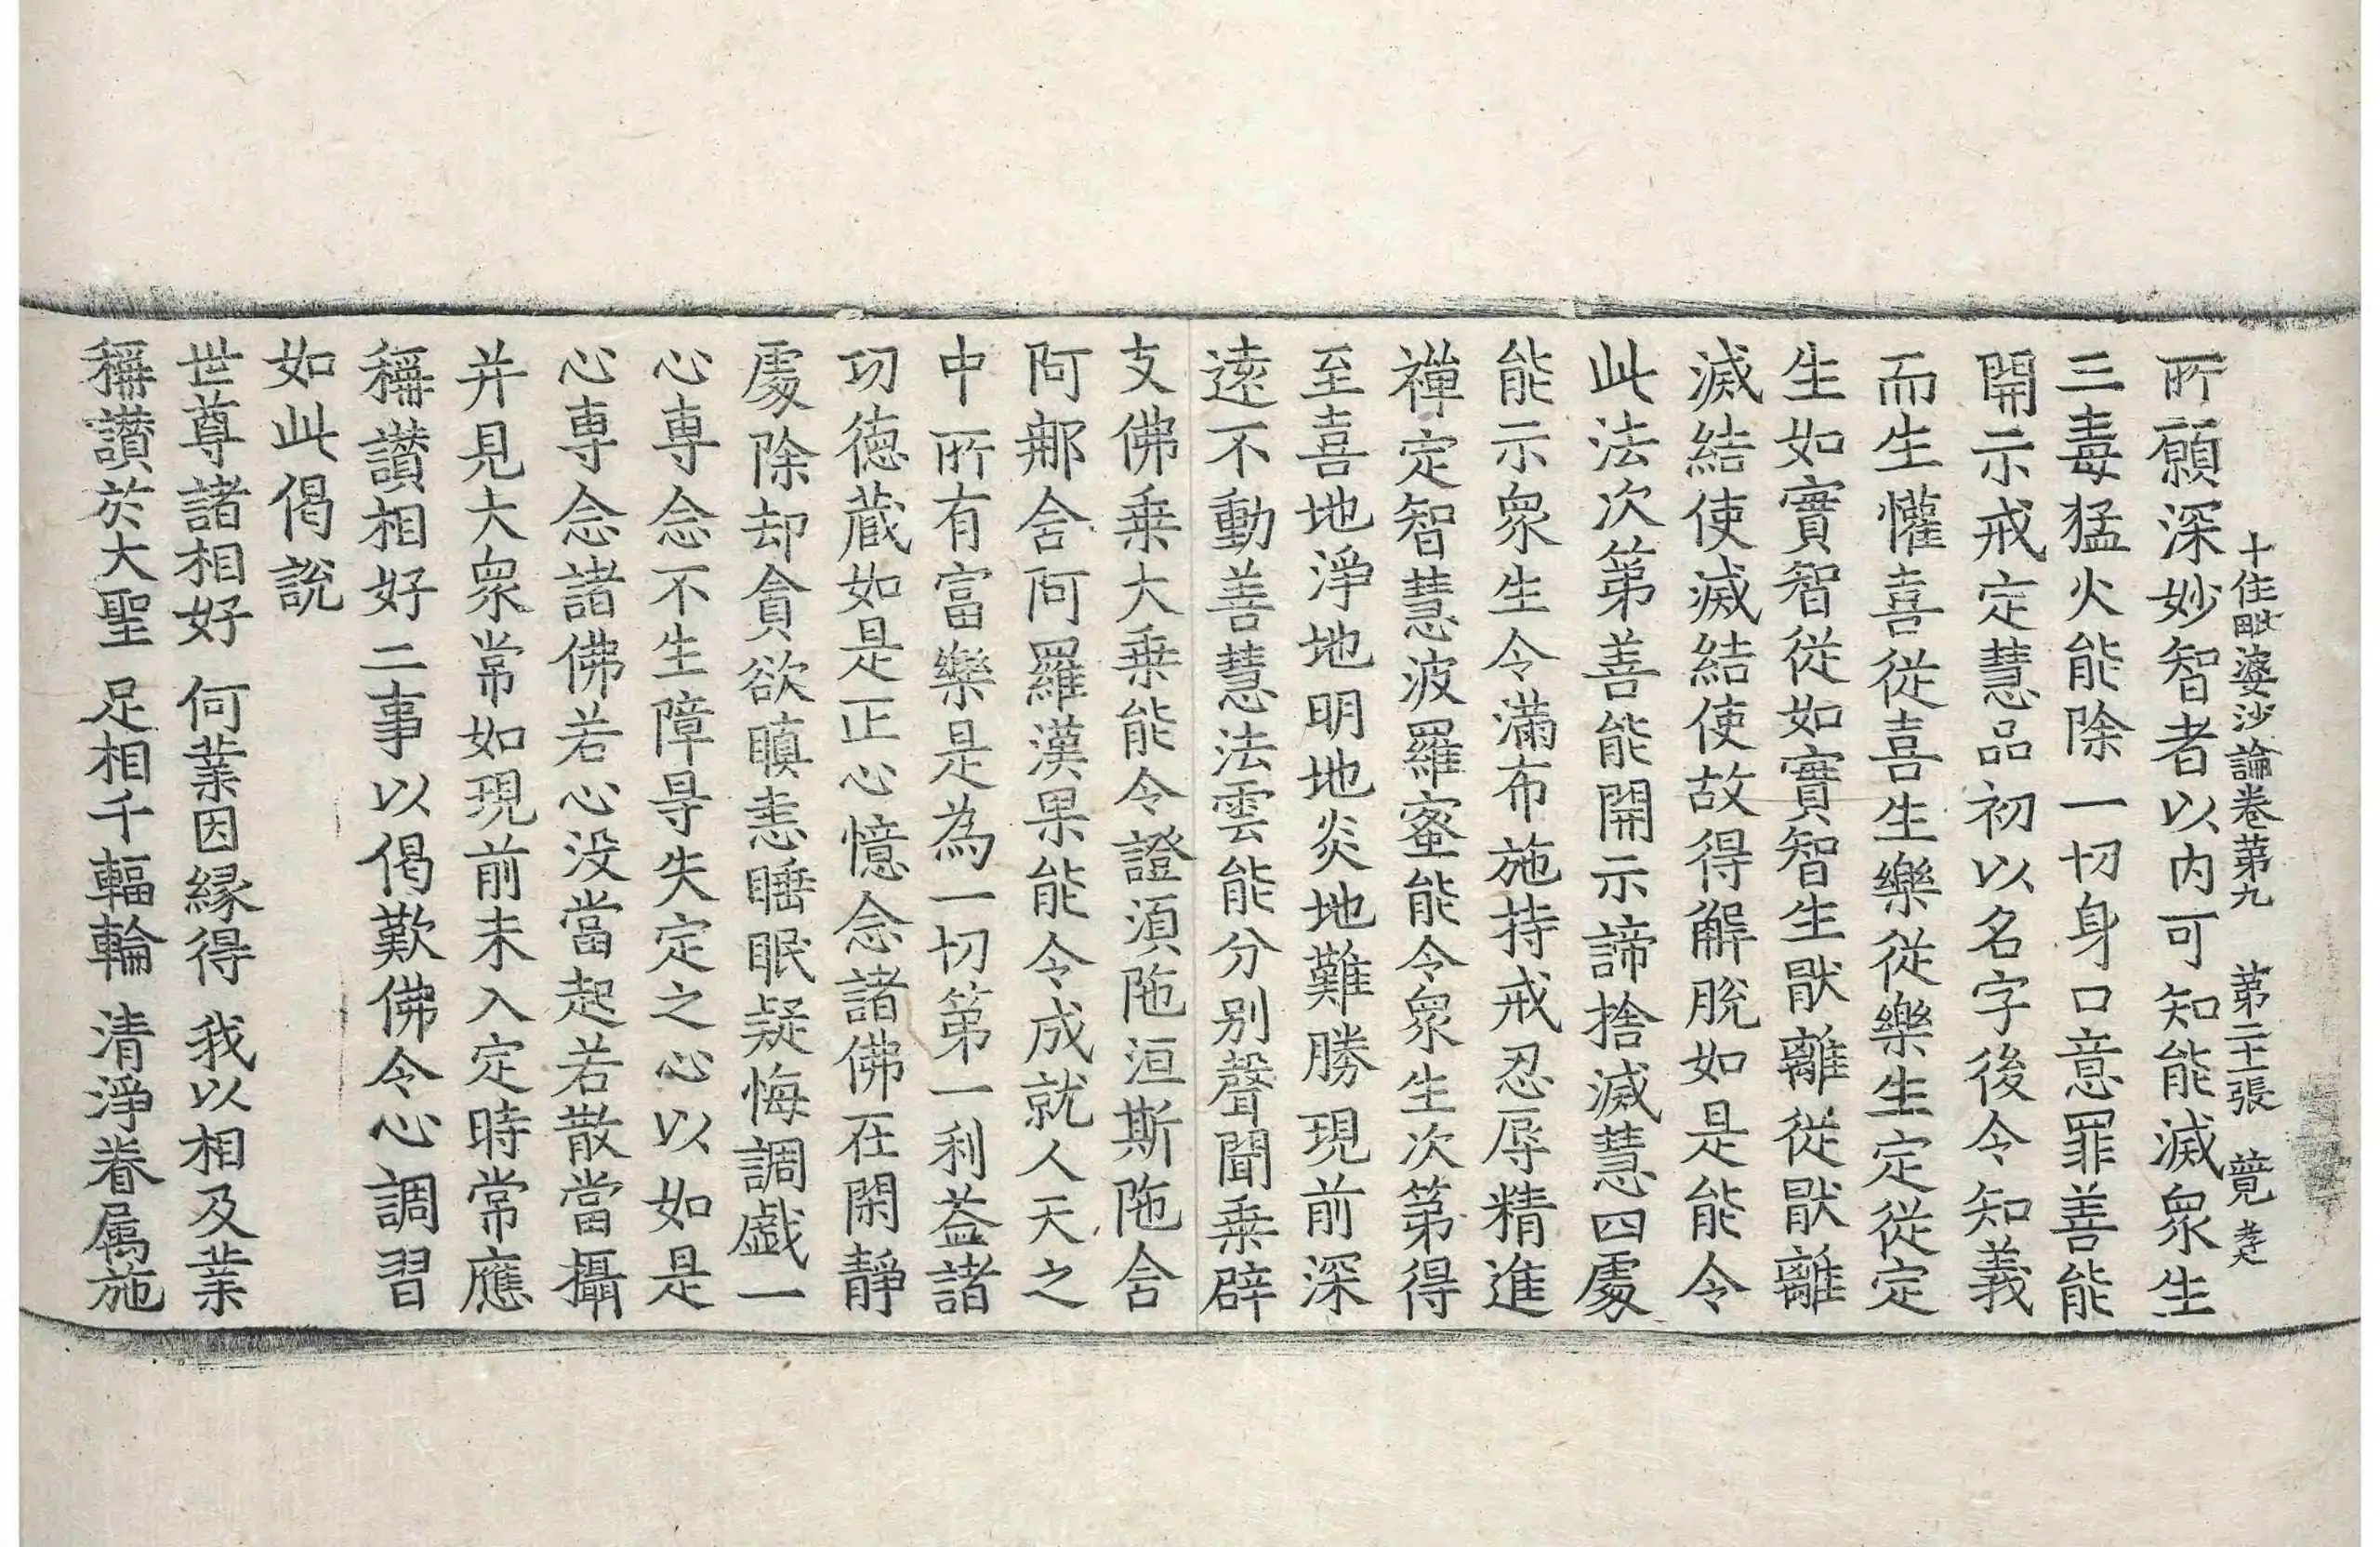 十住毗婆沙論卷第九　第二十張　蕿
所願深妙智者以内可知能滅衆生
三毒猛火能除一切身口意罪善能
開示戒定慧品初以名字後令知義
而生懽喜從喜生樂從樂生定從定
生如實智從如實智生猒離從猒離
滅結使滅結使故得解脫如是能令
此法次第善能開示諦捨滅慧四處
能示衆生令滿布施持戒忍辱精進
禪定智慧波羅蜜能令衆生次第得
至喜地淨地明地炎地難勝現前深
遠不動善慧法雲能分别聲聞乗辟
支佛乗大乗能令證湏陁洹斯陁含
阿那含阿羅漢果能令成就人天之
中所有富樂是為一切第一利益諸
功德蔵如是正心憶念諸佛在閑靜
處除却貪欲瞋恚睡眠疑悔調戲一
心専念不生障㝵失定之心以如是
心専念諸佛若心没當起若散當攝
并見大衆常如現前未入定時常應
稱讃相好二事以偈歎佛令心調習
如此偈說
世尊諸相好　何業因縁得　我以相及業
稱讃於大聖　足相千輻輪　清淨眷属施